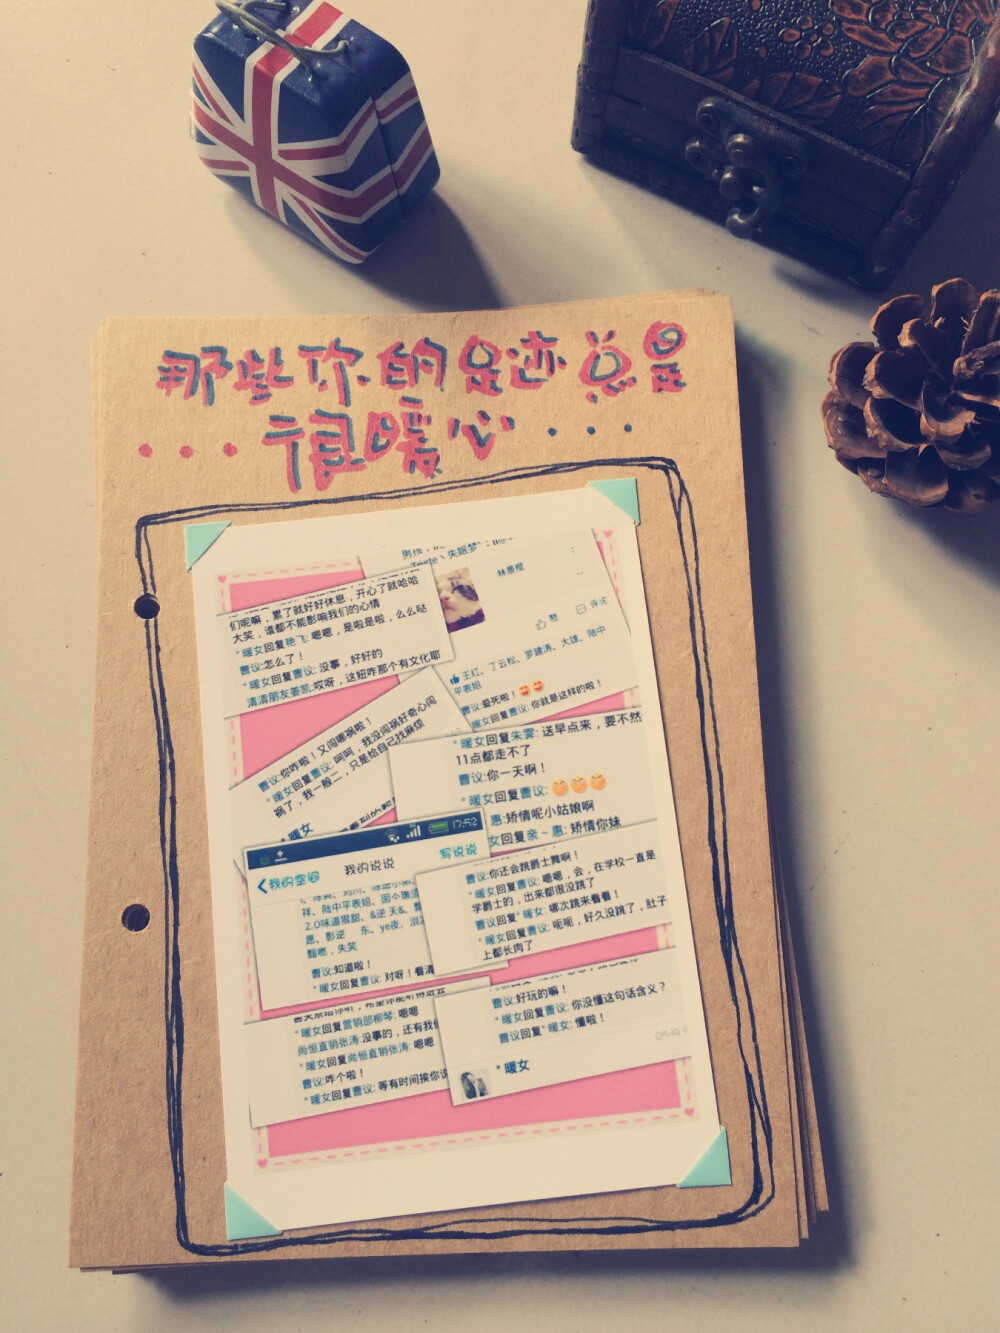 那些你的足迹总是
...很暖心...
男孩
Triste丶失眠梦
林景橙
赞
评论
王红、丁云松、罗建涛、大雄、陆中
平表姐
曹议:爱死啦！
暖女回复曹议: 你就是这样的啦！
们呢嘛，累了就好好休息，开心了就哈哈
大笑，谁都不能影响我们的心情
*暖女回复艳飞: 嗯嗯，是啦是啦，么么哒
曹议:怎么了！
*暖女回复曹议: 没事，好好的
清清朋友姜凯:哎呀，这妞咋那个有文化耶
曹议:你咋啦！又闯哪祸啦！
*暖女回复曹议: 呵呵，我没闯祸好奇心闯
祸了，我一般二，只是给自己找麻烦
*暖女
*暖女回复朱雯: 送早点来，要不然
11点都走不了
曹议:你一天啊！
*暖女回复曹议:
惠: 矫情呢小姑娘啊
女回复亲~惠: 矫情你妹
17:52
我的空间
我的说说
写说说
祥、陆中平表姐、
2.0味道狠甜、&逆 天&、
愿、影逆 东、ye夜、
黯然，失笑
曹议:知道啦！
*暖女回复曹议: 对呀！看清
曹议:你还会跳爵士舞啊！
*暖女回复曹议: 嗯嗯，会，在学校一直是
学爵士的，出来都很没跳了
曹议回复*暖女: 哪次跳来看看！
*暖女回复曹议: 呃呃，好久没跳了，肚子
上都长肉了
*暖女回复营销部柳琴: 嗯嗯
尚恒直销张涛:没事的，还有我们
*暖女回复尚恒直销张涛: 嗯嗯
曹议:咋个啦！
*暖女回复曹议: 等有时间挨你说
曹议:好玩的嘛！
*暖女回复曹议: 你没懂这句话含义？
曹议回复*暖女: 懂啦！
*暖女